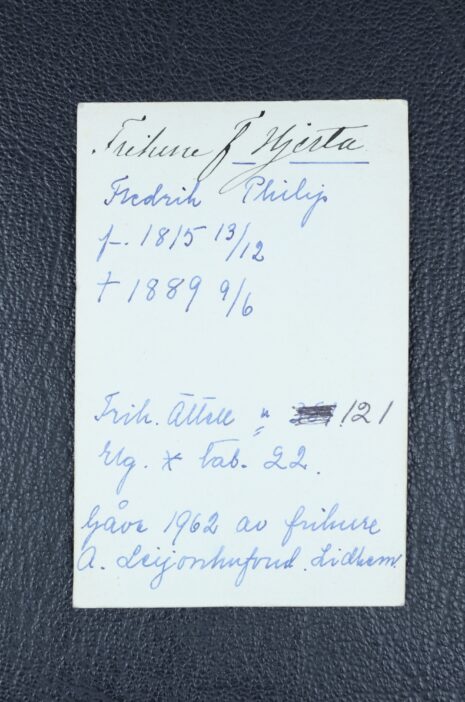 Friherre F Hjerta
Fredrik Philip
f. 1815 13/12
† 1889 9/6
Frih. Ätten n 121
Elg. x Tab. 22.
Gåva 1962 av friherre
A. Leijonhufvud. Lidhem